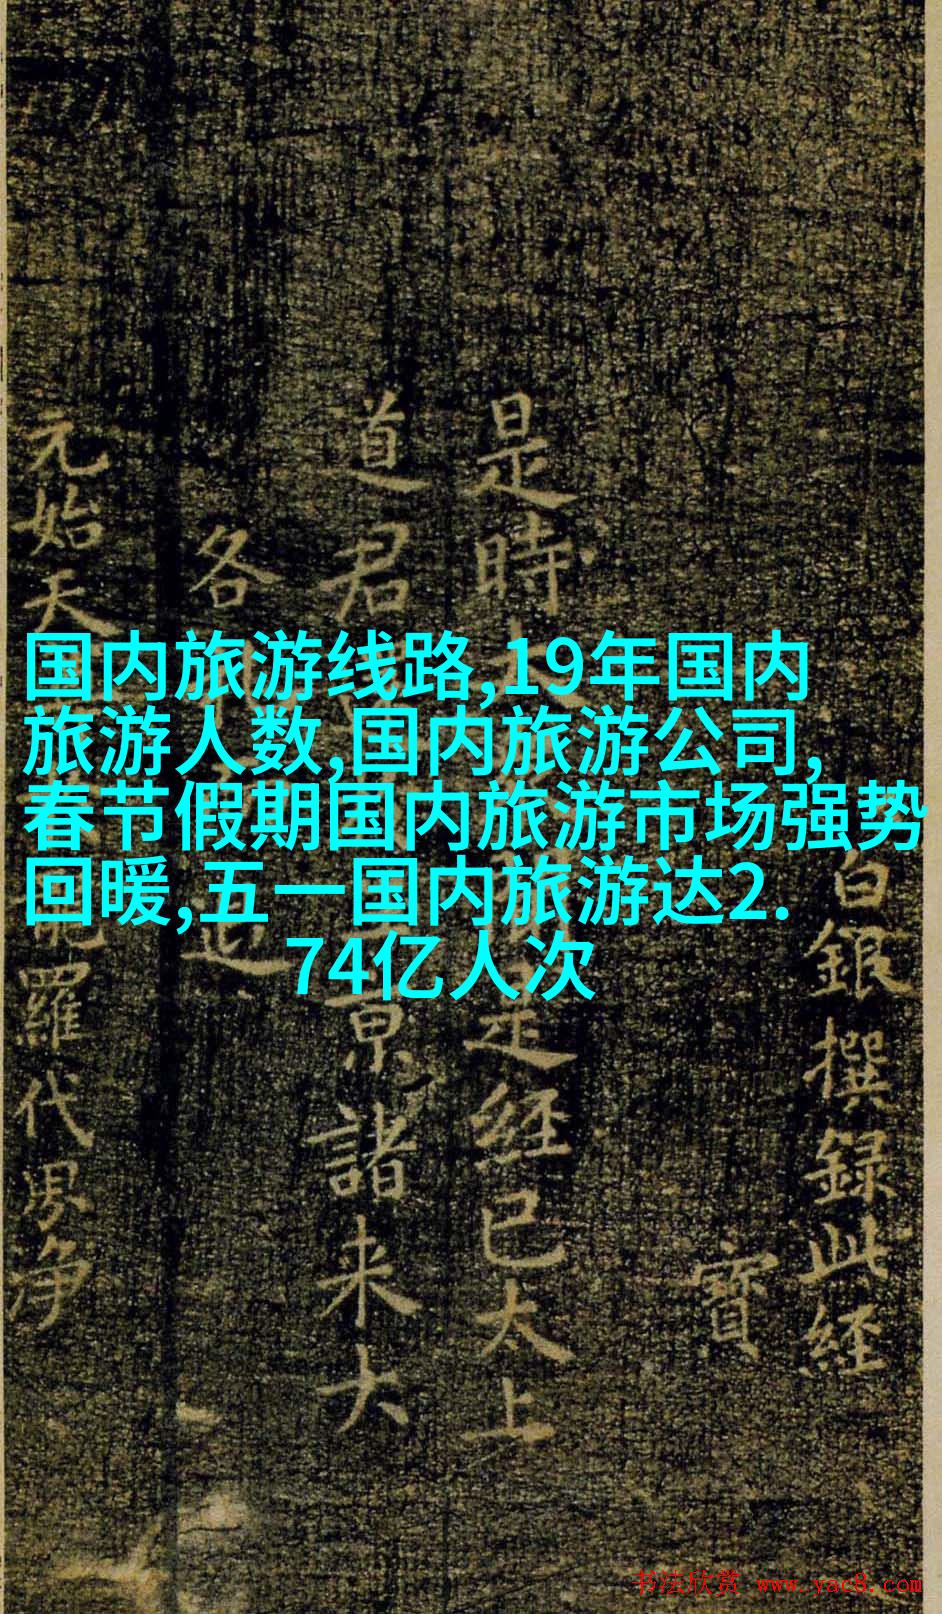 国内旅游线路,19年国内
旅游人数,国内旅游公司,
春节假期国内旅游市场强势
回暖,五一国内旅游达2.
74亿人次
白銀撰録此經
寶
是時
是經已太上
道君
京諸来大
各
元始天
羅代界净
书法欣赏 www.yac8.com